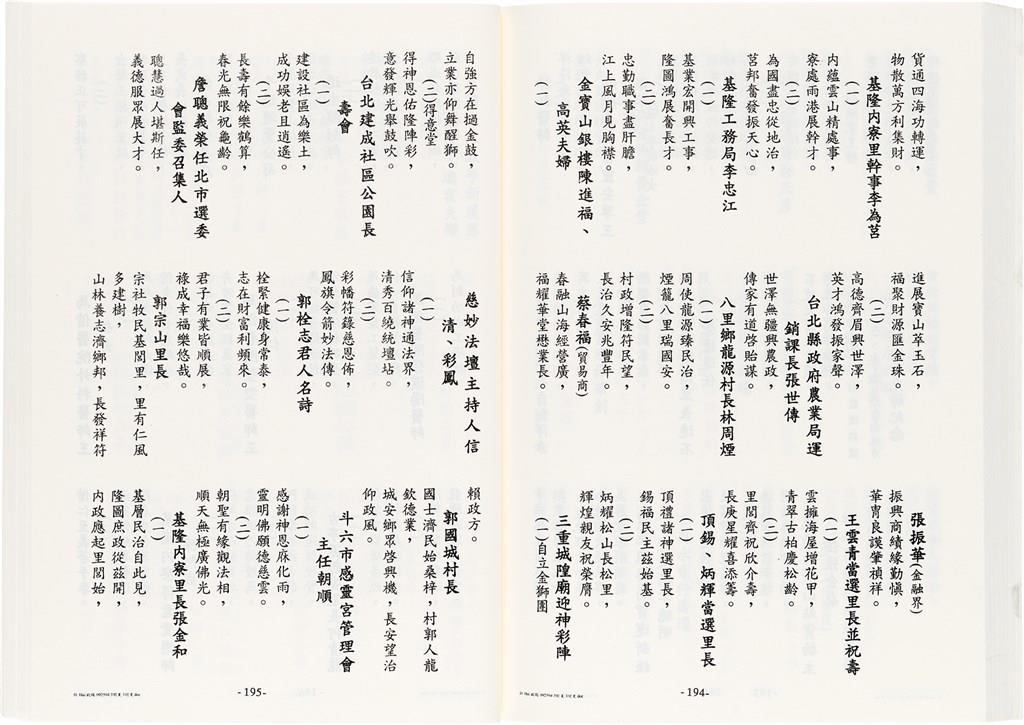 貨通四海功轉運，
物散萬方利集財。
基隆内寮里幹事李為莒
(一)
内蘊雲山精處事，
寮處雨港展幹才。
(二)
為國盡忠從地治，
莒邦奮發振天心。
基隆工務局李忠江
(一)
基業宏開興工事，
隆圖鴻展奮長才。
(二)
忠勤職事盡肝膽，
江上風月見胸襟。
金寶山銀樓陳進福、
高英夫婦
(一)
進展寶山萃玉石，
福聚財源匯金珠。
(二)
高德齊眉興世澤，
英才鴻發振家聲。
台北縣政府農業局運
銷課長張世傳
世澤無疆興農政，
傳家有道啓貽謀。
八里鄉龍源村長林周煙
(一)
周使龍源臻民治，
煙籠八里瑞國安。
(二)
村政增隆符民望，
長治久安兆豐年。
蔡春福(貿易商)
春融山海經營廣，
福耀華堂懋業長。
張振華(金融界)
振興商績緣勤慎，
華冑良謨肇禎祥。
王雲青當選里長並祝壽
(一)
雲擁海屋增花甲，
青翠古柏慶松齡。
(二)
里閭齊祝欣介壽，
長庚星耀喜添籌。
頂錫、炳輝當選里長
(一)
頂禮諸神選里長，
錫福民主茲始基。
(二)
炳耀松山長松里，
輝煌親友祝榮膺。
三重城隍廟迎神彩陣
(一)自立金獅團
-194-
自強方在撾金鼓，
立業亦仰舞醒獅。
(二)得意堂
得神恩佑隆陣彩，
意發輝光舉鼓吹。
台北建成社區公園長
壽會
(一)
建設社區為樂土，
成功娛老且逍遙。
(二)
長壽有餘樂鶴算，
春光無限祝龜齡。
詹聰義榮任北市選委
會監委召集人
聰慧過人堪斯任，
義德服眾展大才。
慈妙法壇主持人信
清、彩鳳
(一)
信仰諸神通法界，
清秀百繞統壇坫。
(二)
彩幡符籙慈恩佈，
鳳旗令箭妙法傳。
郭栓志君人名詩
(一)
栓緊健康身常泰，
志在財富利頻來。
(二)
君子有業皆順展，
祿成幸福樂悠哉。
郭宗山里長
宗社牧民基閭里，里有仁風
多建樹，
山林養志濟鄉邦，長發祥符
賴政方。
郭國城村長
國士濟民始桑梓，村郭人龍
欽德業，
城安鄉眾啓興機，長安望治
仰政風。
斗六市感靈宮管理會
主任朝順
(一)
感謝神恩庥化雨，
靈明佛願德慈雲。
(二)
朝聖有緣觀法相，
順天無極廣佛光。
基隆内寮里長張金和
(一)
基層民治自此見，
隆圖庶政從茲開，
内政應起里閭始，
-195-